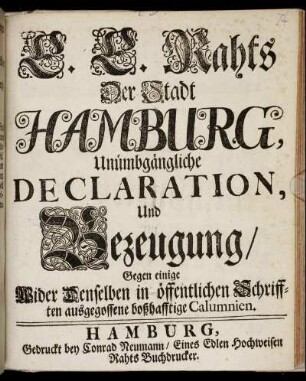 E. E. Rahts
Der Stadt
HAMBURG,
Unümbgängliche
DECLARATION,
Und
Bezeugung/
Gegen einige
Wider Denselben in öffentlichen Schriff-
ten ausgegossene boßhafftige Calumnien.
HAMBURG,
Gedruckt bey Conrad Neumann/ Eines Edlen Hochweisen
Rahts Buchdrucker.